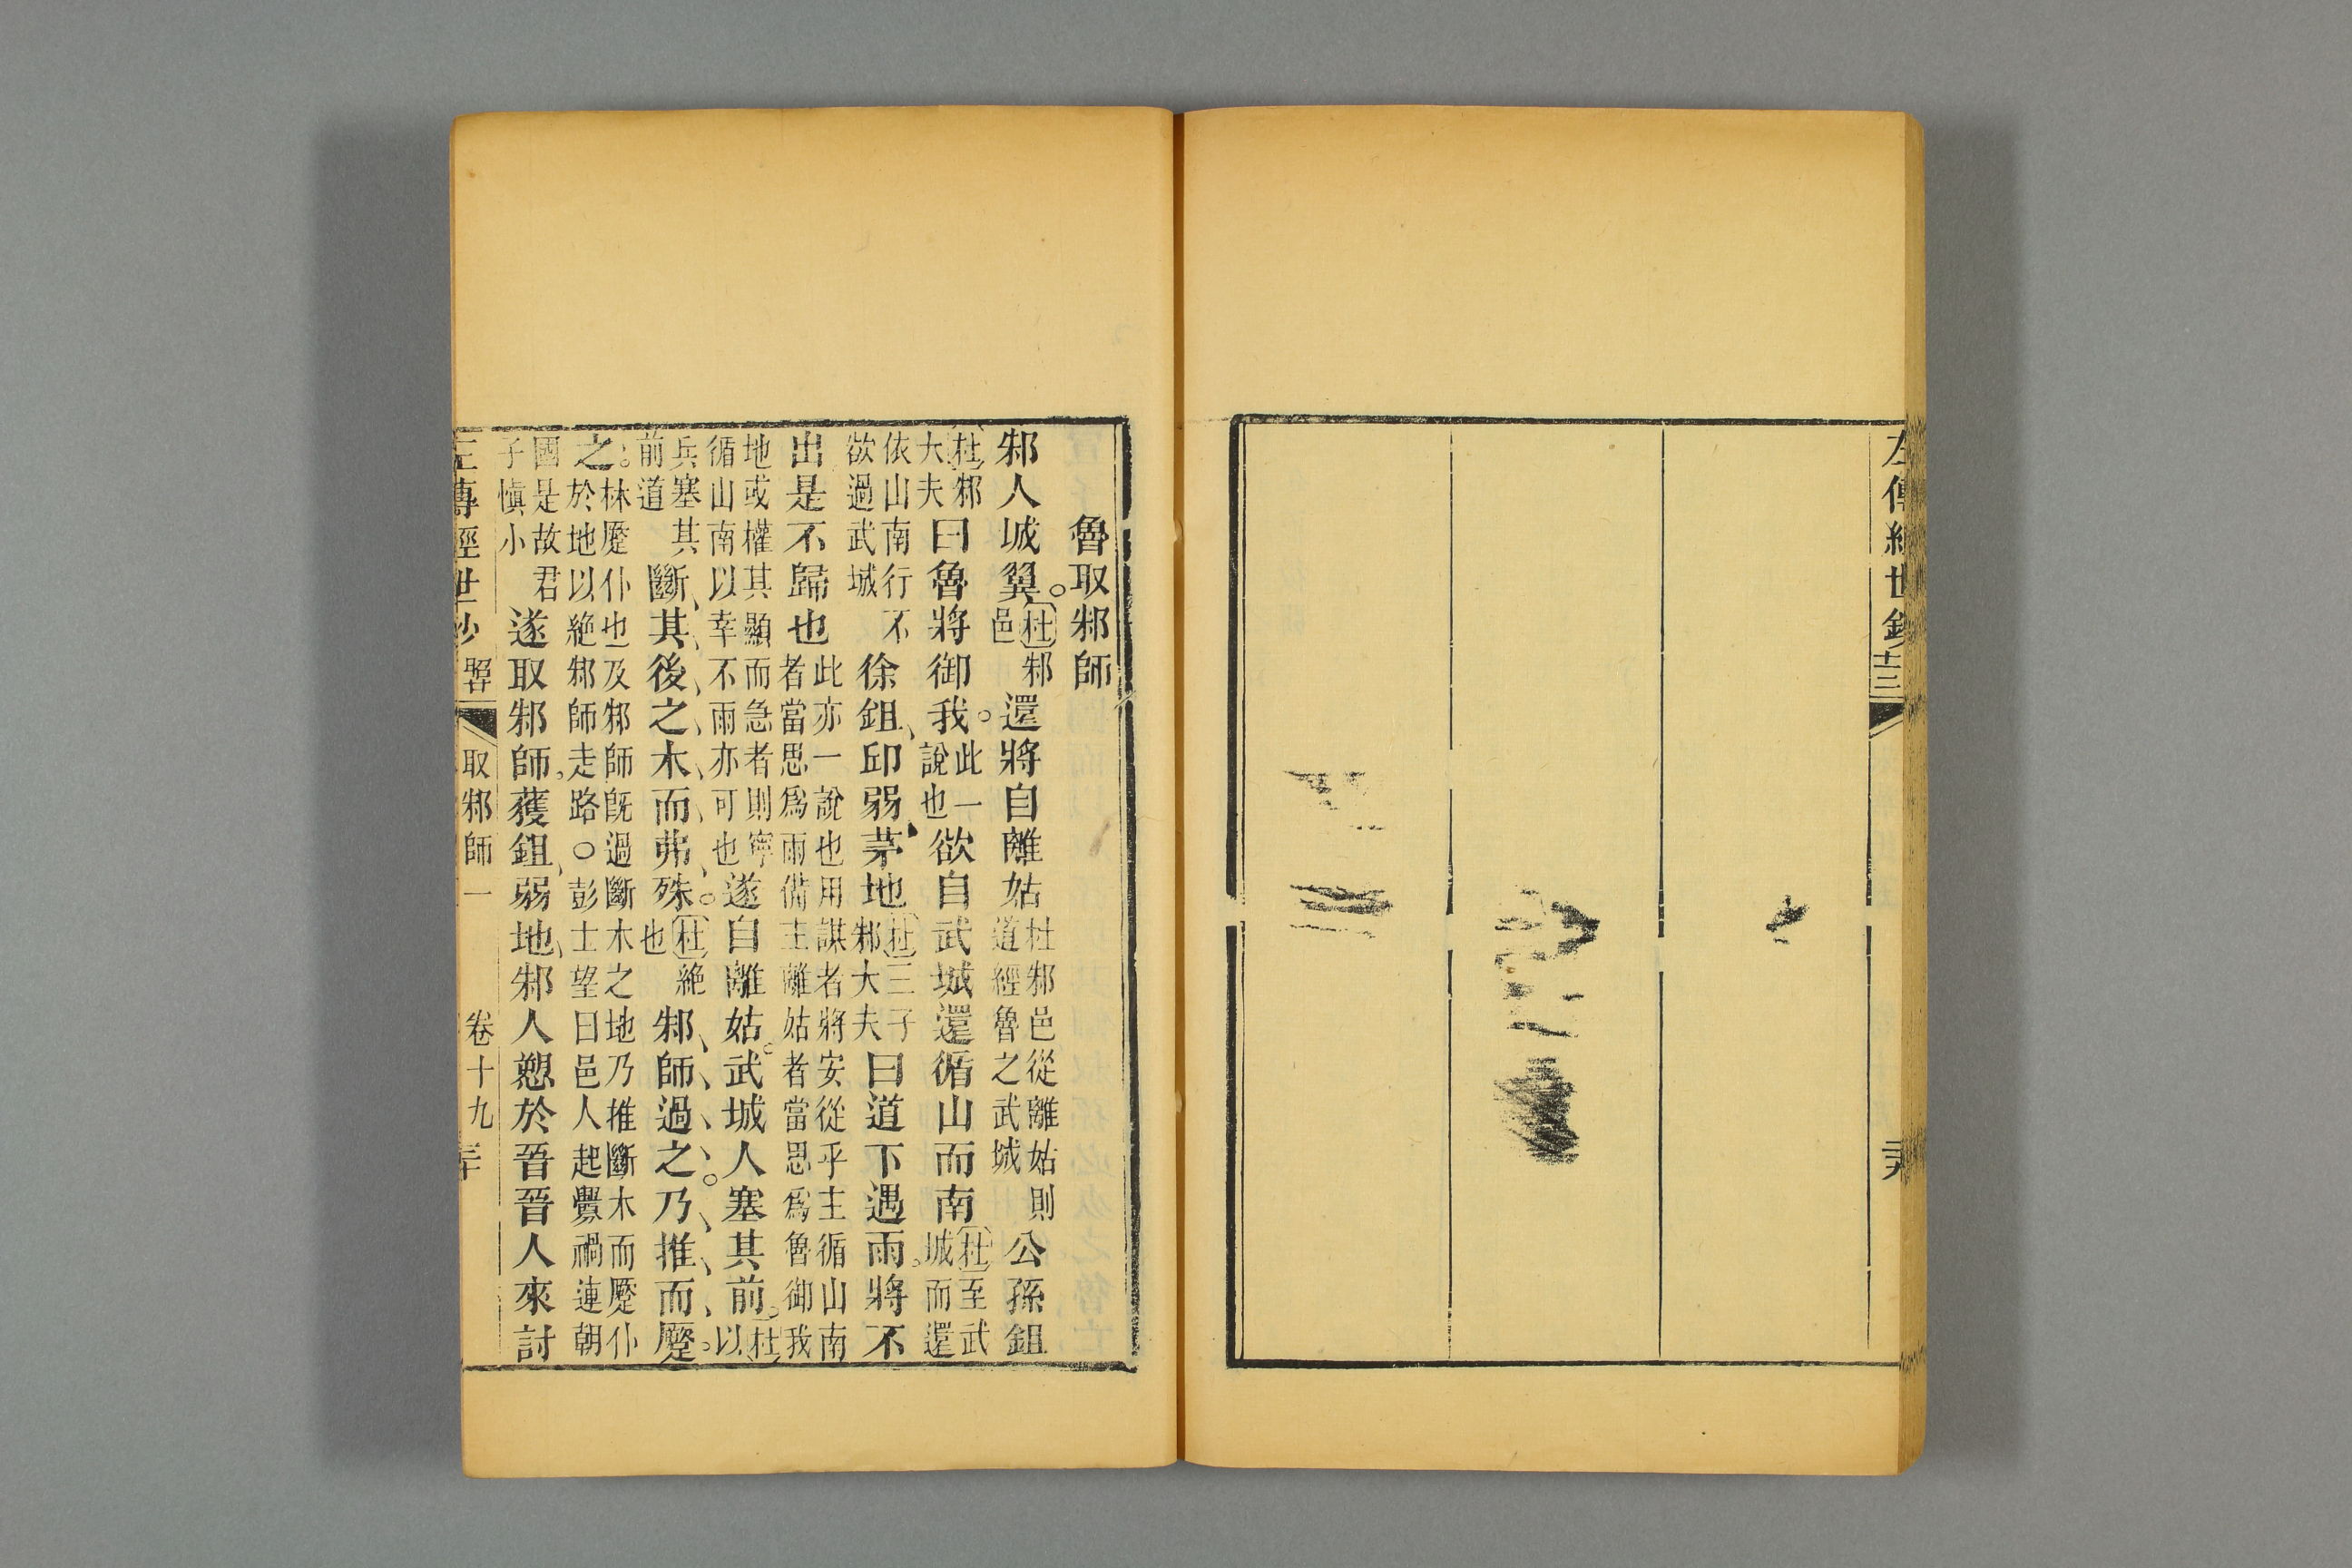 左傳經世鈔
魯取邾師
邾人城翼。杜邾邑還將自離姑杜邾邑從離姑則道經魯之武城公孫鉏
杜邾大夫曰魯將御我。此一說也欲自武城還循山而南杜至武城而還
依山南行不欲過武城徐鉏邱弱茅地杜三子邾大夫曰道下遇雨將不
出是不歸也此亦一說也用謀者將安從乎主循山南者當思爲雨備主離姑者當思爲魯御我
地或權其顯而急者則寧循山南以幸不雨亦可也遂自離姑。武城人塞其前。杜以
兵塞其前道斷其後之木而弗殊。杜絕也邾師過之。乃推而蹷。
之。林蹷仆也及邾師旣過斷木之地乃推斷木而蹷仆於地以絕邾師走路○彭士望曰邑人起釁禍連朝
國是故君子愼小遂取邾師獲鉏弱地邾人愬於晉晉人來討
左傳經世鈔 取邾師一 卷十九 三十